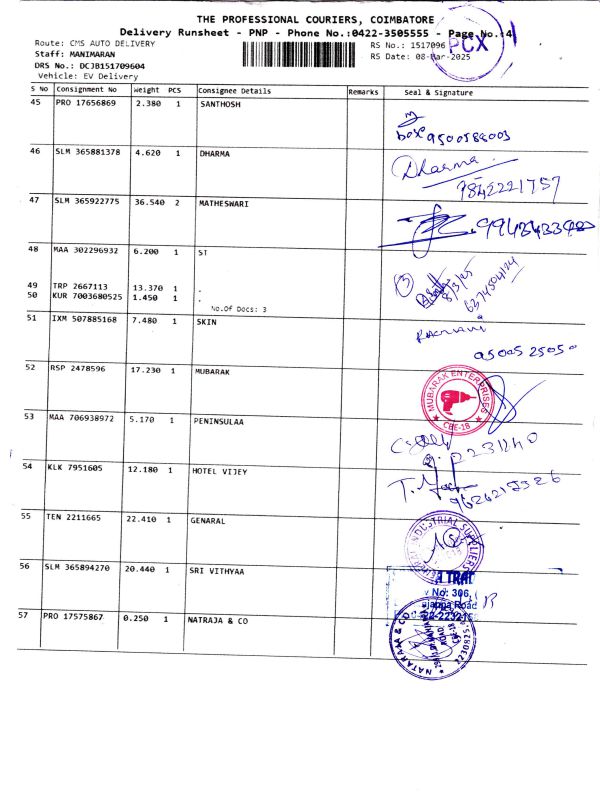 THE PROFESSIONAL COURIERS, COIMBATORE
Delivery Runsheet - PNP - Phone No.:0422-3505555 - Page No.:4
PCX
Route: CMS AUTO DELIVERY
RS No.: 1517096
Staff: MANIMARAN
RS Date: 08-Mar-2025
DRS No.: DCJB151709604
Vehicle: EV Delivery
S No Consignment No Weight PCS Consignee Details Remarks Seal & Signature
45 PRO 17656869 2.380 1 SANTHOSH
box 9500588003
46 SLM 365881378 4.620 1 DHARMA
Dharma
9842221757
47 SLM 365922775 36.540 2 MATHESWARI
48 MAA 302296932 6.200 1 ST
3
8/3/25
6374504124
49 TRP 2667113 13.370 1 .
50 KUR 7003680525 1.450 1 .
No.Of Docs: 3
51 IXM 507885168 7.480 1 SKIN
95005 25050
52 RSP 2478596 17.230 1 MUBARAK
MUBARAK ENTERPRISES
CBE-18
53 MAA 706938972 5.170 1 PENINSULAA
2231240
54 KLK 7951605 12.180 1 HOTEL VIJEY
55 TEN 2211665 22.410 1 GENARAL
INDUSTRIAL SUPPLIERS
56 SLM 365894270 20.440 1 SRI VITHYAA
No: 306,
Road
57 PRO 17575867 0.250 1 NATRAJA & CO
NATARAJA & CO
ROAD
CBE-18
2230825